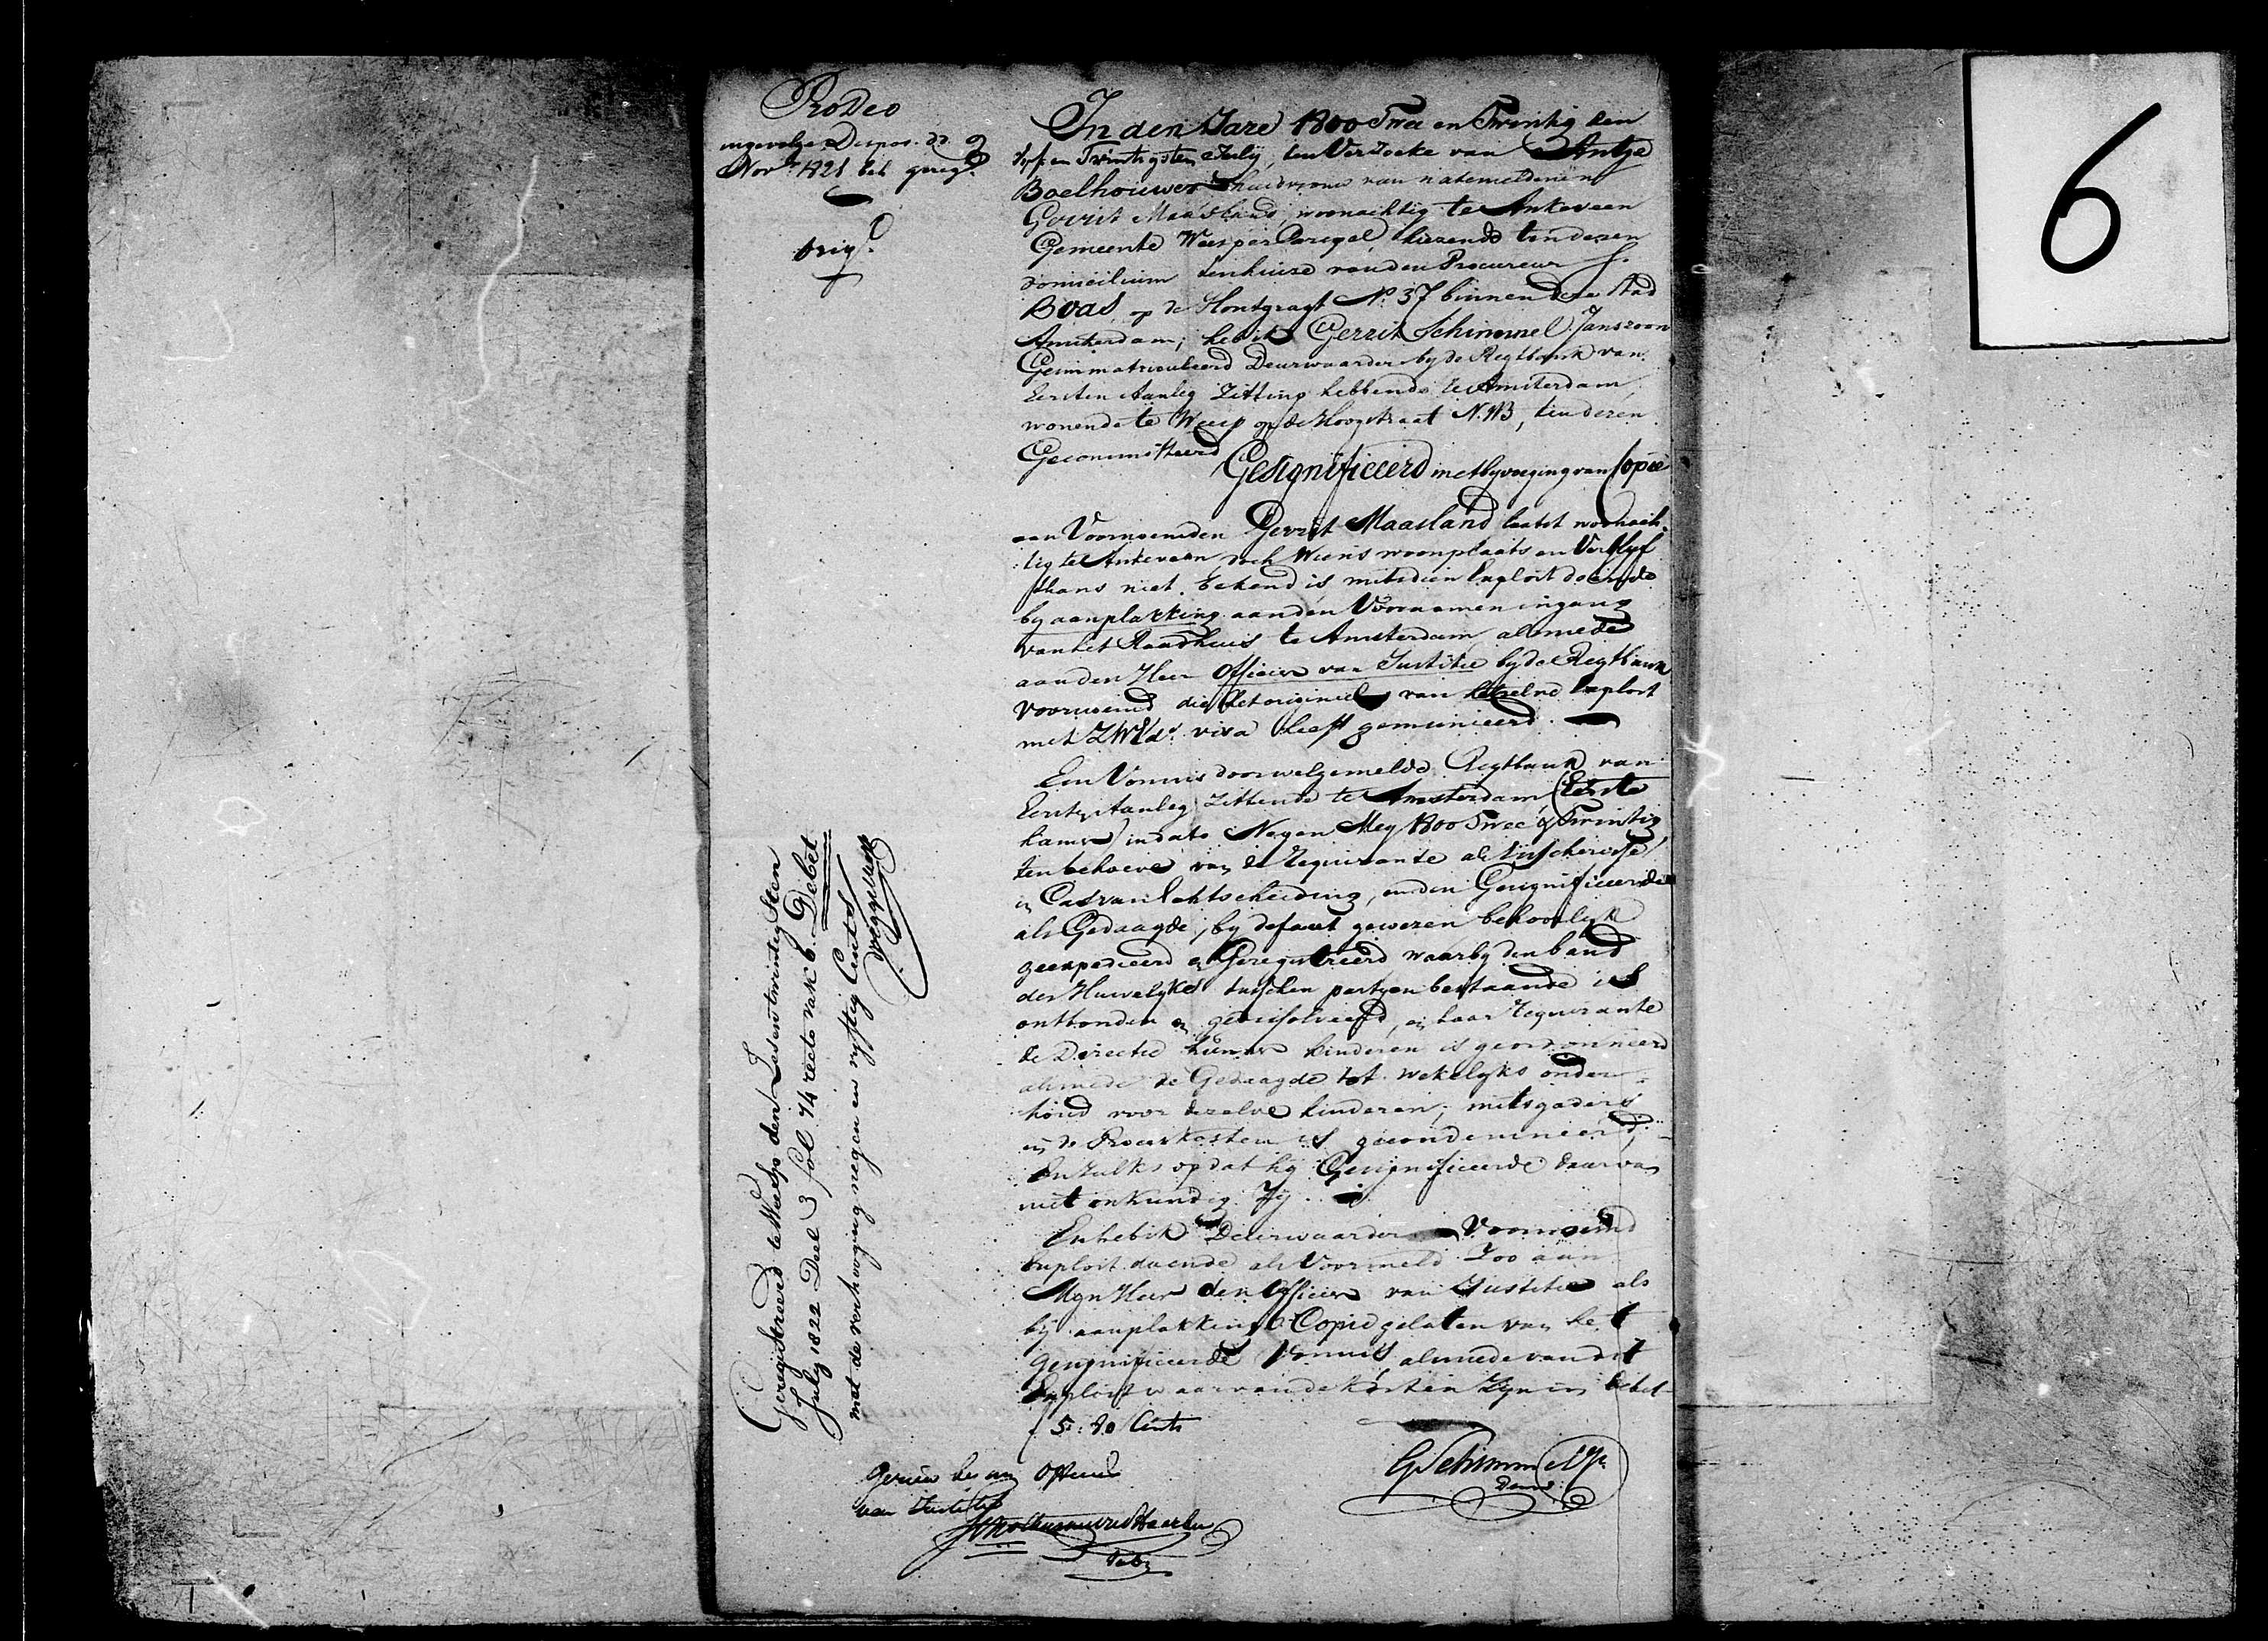 ProDeo
ingevolge Dispos. dd. 2
Nov. 1821 beh. gereg.
orig.
In den Jare 1800 Twee en Twintig den
Vyf en Twintigsten July, ten Verzoeke van Antje
Boelhouwer huisvrouw van natemeldenen
Gerrit Maasland, woonachtig te Ankeveen
Gemeente Weesper Carspel kiezende ten dezen
domicilium ten huize van den Procureur S.
Boas op de Houtgragt No. 37 binnen deze Stad
Amsterdam; heb ik Gerrit Schimmel Janszoon
Geimmatriculeerd Deurwaarder by de Regtbank van
Eersten Aanleg Zitting hebbende te Amsterdam,
wonende te Weesp op de Hoogstraat N. 113, ten dezen
Gecommitteerd
Gesignificeerd met byvoeging van Copie
aan Voornoemden Gerrit Maasland laatst woonach-
:tig te Ankeveen, doch Wiens woonplaats en Verblyf
thans niet bekend is mitsdien Exploit doende
by aanplakking aan den Voornamen ingang
van het Raadhuis te Amsterdam, alsmede
aan den Heer Officier van Justitie by de Regtbank
voornoemd die het origineel van hetzelve Exploit
met ZWEd. visa heeft gemunieerd.
Een Vonnis door welgemelde Regtbank van
Eersten Aanleg Zittende te Amsterdam (Eerste
kamer) in dato Negen Mey 1800 Twee & Twintig,
ten behoeve van de Requirante als Eisscheresse
in Cas van Echtscheiding, en den Gesignificeerde
als Gedaagde, by defaut gewezen behoorlyk
geexpedieerd en Geregistreerd waarby den band
des Huwelyks tusschen partyen bestaande is
ontbonden en gedissolveerd, en haar Requirante
de Directie hunner kinderen is geordonneerd
alsmede de Gedaagde tot wekelyks onder-
houd voor dezelve kinderen, mitsgaders
in de Proceskosten is gecondemneerd,
En zulks op dat hy Gesignificeerde daarvan
niet onkundig Zy.
En heb ik Deurwaarder Voornoemd
Exploit doende als Voormeld Zoo aan
Myn Heer den Officier van Justitie als
by aanplakking Copie gelaten van het
Gesignificeerde Vonnis alsmede van dit
Exploit waarvan de kosten Zyn in debet
f 5:70 Cents
G Schimmel Jz.
Deurw.
Gezien bij ons Officier
van Justitie
Subs.
Geregistreerd te Weesp den Zesentwintigsten
July 1822 Deel 3 fol 74 recto vak 6. Debet
met de verhooging negen en vyftig Cents
6